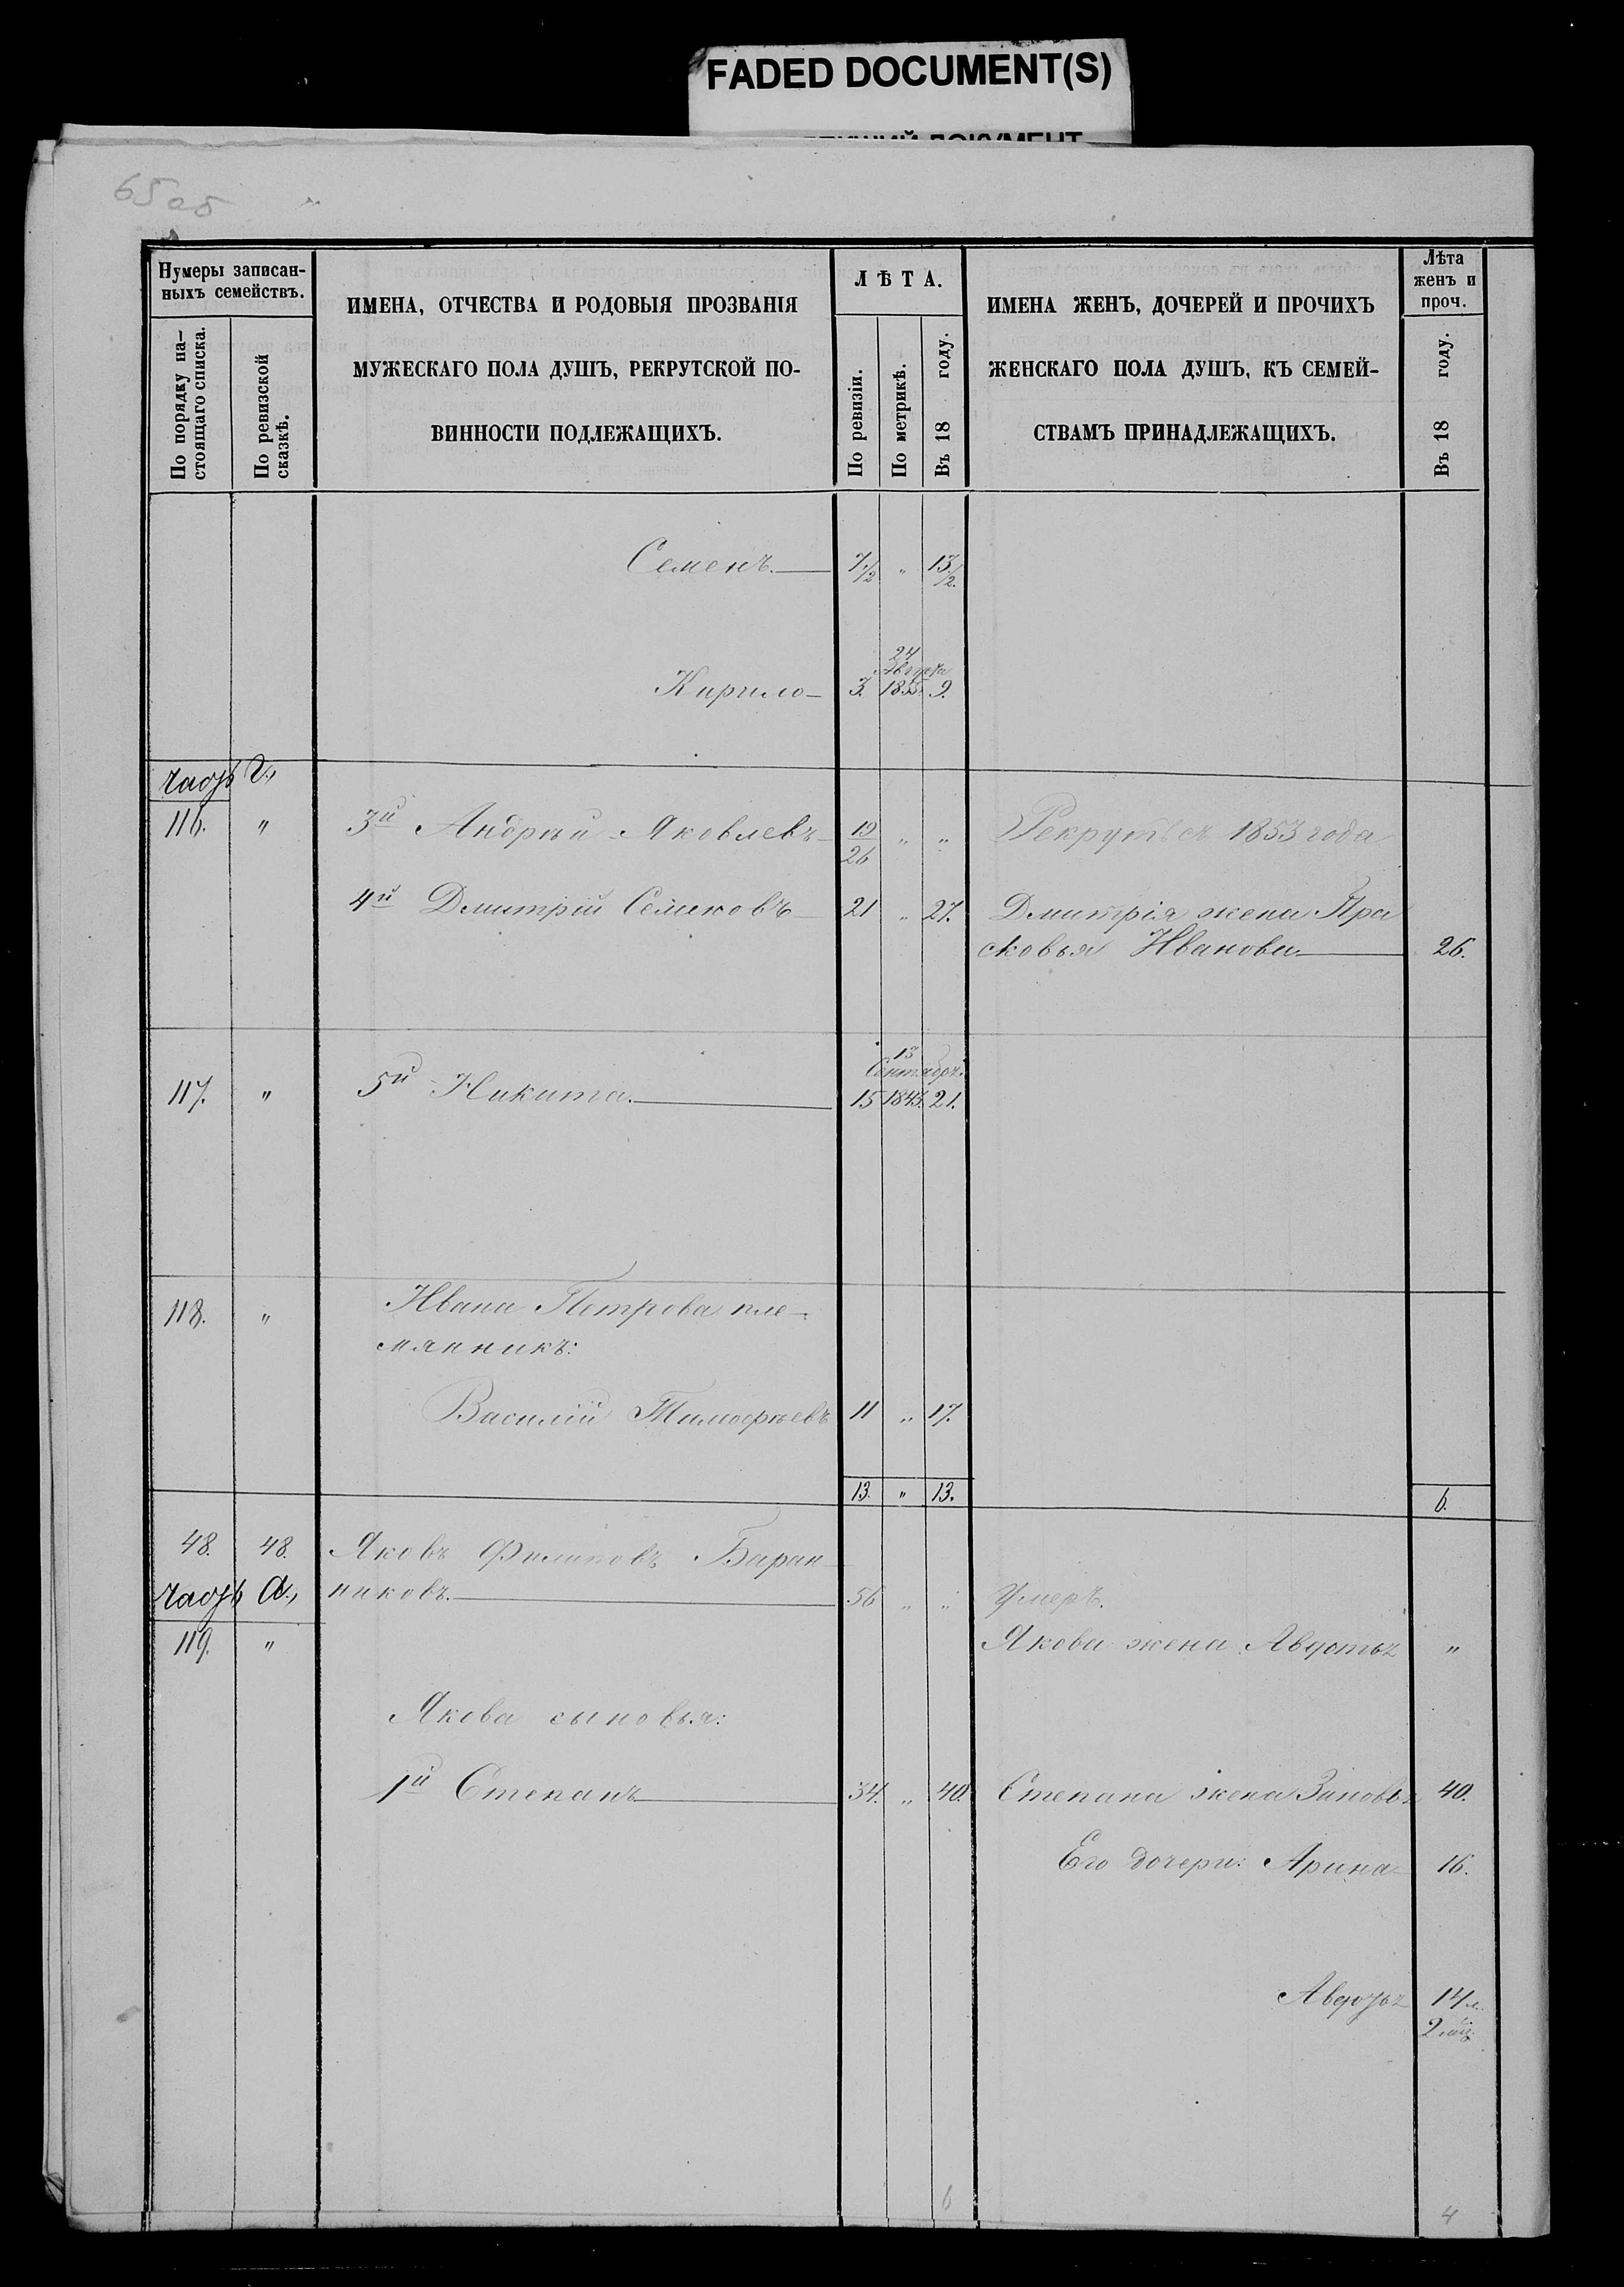 FADED DOCUMENT(S)
65 об
Нумеры записан-
ныхъ семействъ.
По порядку на-
стоящаго списка.
По ревизской
сказкѣ.
ИМЕНА, ОТЧЕСТВА И РОДОВЫЯ ПРОЗВАНІЯ
МУЖЕСКАГО ПОЛА ДУШЪ, РЕКРУТСКОЙ ПО-
ВИННОСТИ ПОДЛЕЖАЩИХЪ.
ЛѢТА.
По ревизіи.
По метрикѣ.
Въ 18 году.
ИМЕНА ЖЕНЪ, ДОЧЕРЕЙ И ПРОЧИХЪ
ЖЕНСКАГО ПОЛА ДУШЪ, КЪ СЕМЕЙ-
СТВАМЪ ПРИНАДЛЕЖАЩИХЪ.
Лѣта
женъ и
проч.
Въ 18 году.
Семенъ. 7 1/2 " 13 1/2.
24
Августа
Кирило 3. 1855 9.
116. " 3й Андрей Яковлевъ 19/26 " " Рекрутъ съ 1853 года
4й Дмитрій Семиковъ 21 " 27. Дмитрія жена Пра
сковья Иванова 26.
13
Сентября
117. " 5й Никита. 15 1843. 21.
118. " Ивана Петрова пле-
мянникъ:
Василій Тимофѣевъ 11 " 17.
13. " 13. 6.
48. 48. Яковъ Филиповъ Баран
никовъ. 56 " " Умеръ.
119. " Якова жена Авдотья "
Якова сыновья:
1й Степанъ 34. " 40. Степана жена Зиновья 40.
Его дочери: Арина 16.
Авдотья 14 л.
2 мц.
6 4